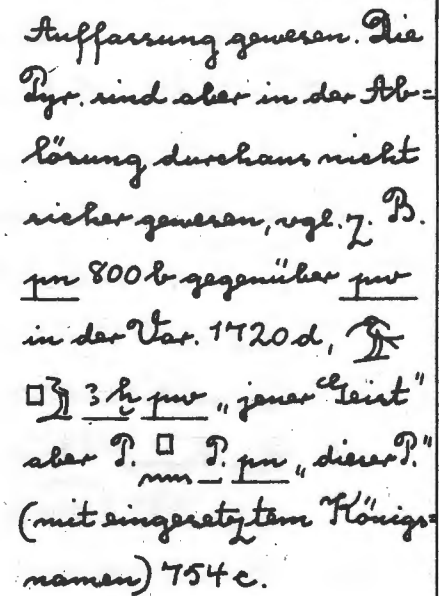 Auffassung gewesen. Die
Pyr. sind aber in der Ab=
lösung durchaus nicht
sicher gewesen, vgl. z. B.
pn 800 b gegenüber pw
in der Var. 1720 d, 𓅜
𓊪𓅱 ꜣḫ pw „jener Geist"
aber P. 𓊪𓈖 P. pn „dieser P."
(mit eingesetztem Königs=
namen) 754 c.